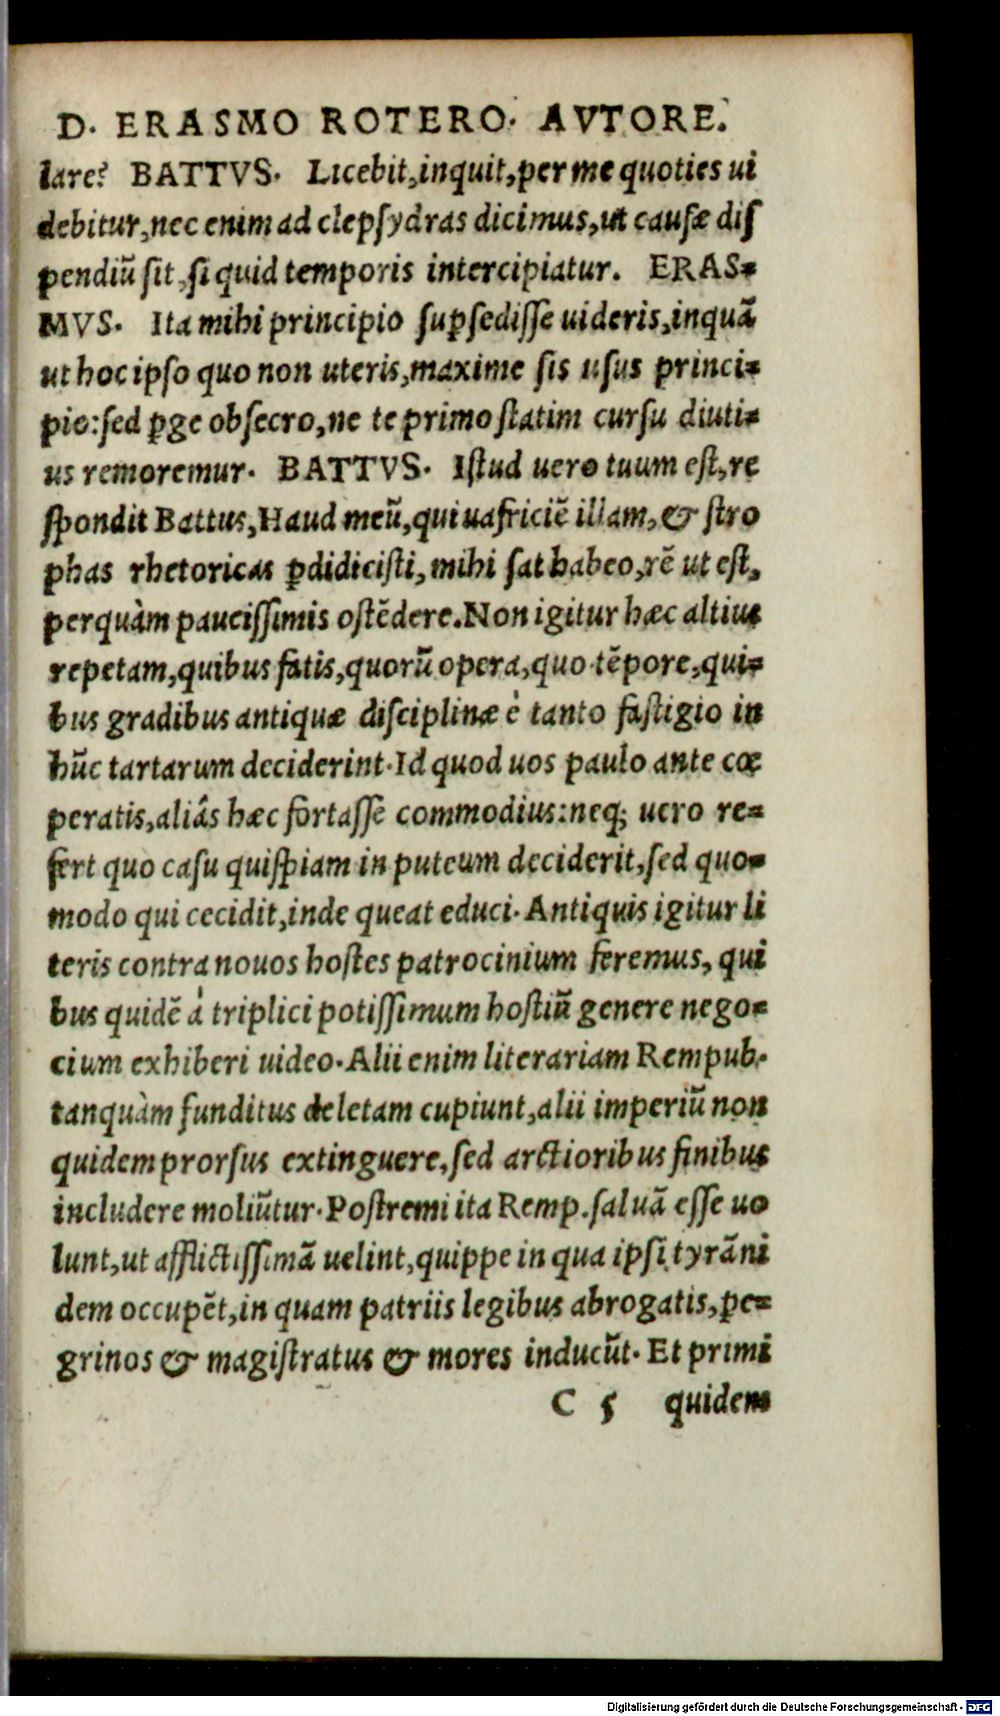 D. ERASMO ROTERO. AVTORE.
lare? BATTVS. Licebit, inquit, per me quoties ui
debitur, nec enim ad clepſydras dicimus, ut cauſæ diſ
pendiũ ſit, ſi quid temporis intercipiatur. ERAS=
MVS. Ita mihi principio ſuꝑſediſſe uideris, inquã
ut hoc ipſo quo non uteris, maxime ſis uſus princi=
pio: ſed ꝑge obſecro, ne te primo ſtatim curſu diuti=
us remoremur. BATTVS. Iſtud uero tuum eſt, re
ſpondit Battus, Haud meũ, qui uafriciẽ illam, & ſtro
phas rhetoricas ꝑdidiciſti, mihi ſat habeo, rẽ ut eſt,
perquàm pauciſſimis oſtẽdere. Non igitur hæc altius
repetam, quibus fatis, quorũ opera, quo tẽpore, qui=
bus gradibus antiquæ diſciplinæ è tanto faſtigio in
hũc tartarum deciderint. Id quod uos paulo ante cœ
peratis, aliâs hæc fortaſſe commodius: neq; uero re=
fert quo caſu quiſpiam in puteum deciderit, ſed quo=
modo qui cecidit, inde queat educi. Antiquis igitur li
teris contra nouos hoſtes patrocinium feremus, qui
bus quidẽ à triplici potiſſimum hoſtiũ genere nego=
cium exhiberi uideo. Alii enim literariam Rempub.
tanquàm funditus deletam cupiunt, alii imperiũ non
quidem prorſus extinguere, ſed arctioribus finibus
includere moliũtur. Poſtremi ita Remp. ſaluã eſſe uo
lunt, ut afflictiſſimã uelint, quippe in qua ipſi tyrãni
dem occupẽt, in quam patriis legibus abrogatis, ꝑe=
grinos & magiſtratus & mores inducũt. Et primi
C 5 quidem
Digitalisierung gefördert durch die Deutsche Forschungsgemeinschaft - DFG